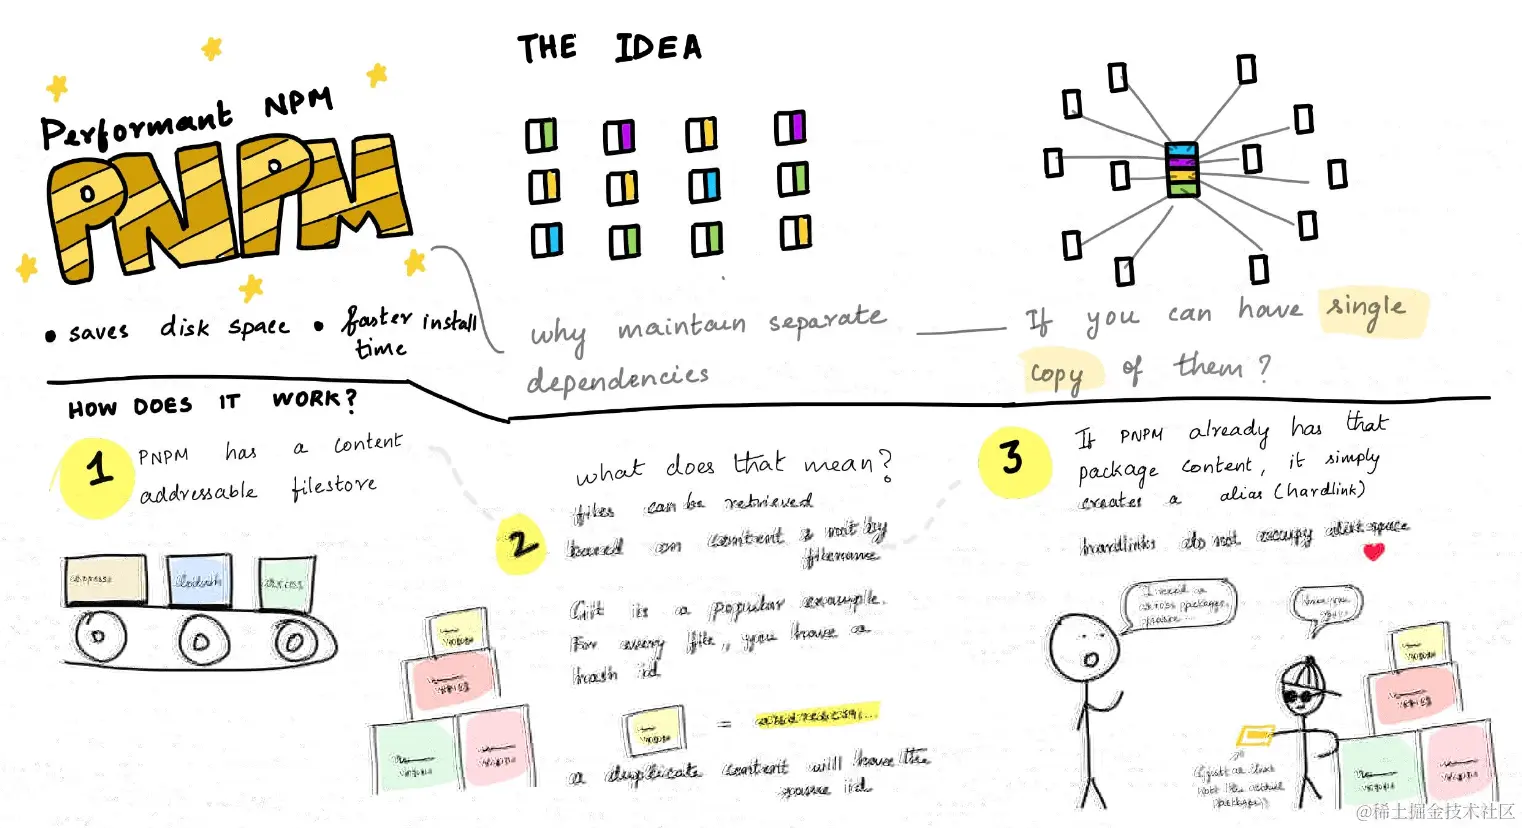 Performant NPM
PNPM
• saves disk space • faster install
time
THE IDEA
why maintain separate
dependencies
If you can have single
copy of them?
HOW DOES IT WORK?
1
PNPM has a content
addressable filestore
express
2
what does that mean?
files can be retrieved
based on content & not by
filename
Git is a popular example.
For every file, you have a
hash id
=
a duplicate content will have the
same id
3
If PNPM already has that
package content, it simply
creates a alias (hardlink)
hardlinks do not occupy disk space
I need a
package,
please...
Here you
(just a link
not the actual
package)
@稀土掘金技术社区